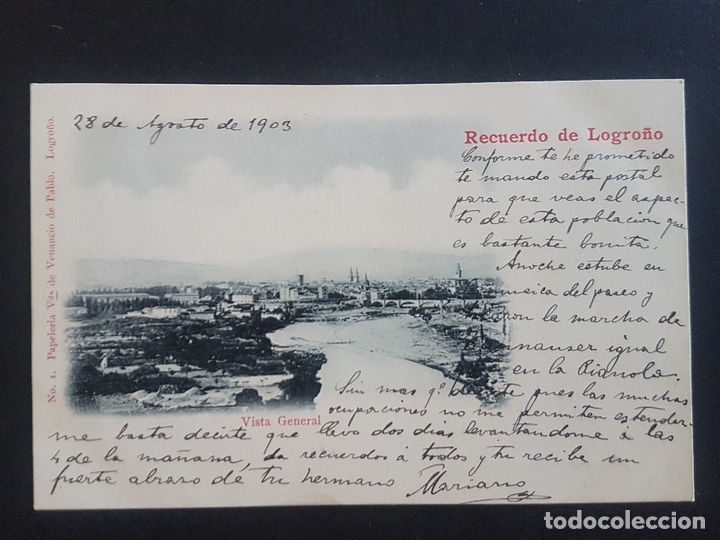 28 de Agosto de 1903
Recuerdo de Logroño
Conforme te he prometido
te mando esta postal
para que veas el aspec-
to de esta poblacion que
es bastante bonita.
Anoche estube en
musica del paseo y
la marcha de
igual
en la Pianola.
Sin mas q.e pues las muchas
ocupaciones no me permiten estender-
me basta decirte que llevo dos dias levantandome á las
4 de la mañana, da recuerdos á todos y tu recibe un
fuerte abraso dé tu hermano Mariano
Vista General
No. 1. Papelería Vda de Venancio de Pablo. Logroño.
todocoleccion.net